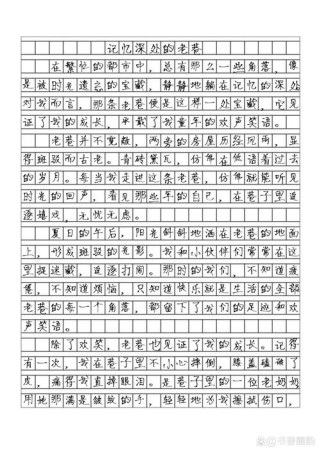 记忆深处的老巷
在繁忙的都市中，总有那么一些角落，像
是被时光遗忘的宝藏，静静地躺在记忆的深处
对我而言，那条老巷便是这样一处宝藏，它见
证了我的成长，承载了我童年的欢声笑语。
老巷并不宽敞，两旁的房屋历经风雨，显
得斑驳而古老。青砖黛瓦，仿佛在低语着过去
的岁月。每当我走进这条老巷，仿佛就能听见
时光的回声，看见那些年的自己，在巷子里追
逐嬉戏，无忧无虑。
夏日的午后，阳光斜斜地洒在老巷的地面
上，形成斑驳的光影。我和小伙伴们常常在这
里捉迷藏，追逐打闹。那时的我们，不知道疲
倦，不知道烦恼，只知道快乐就是生活的全部
老巷的每一个角落，都留下了我们的足迹和欢
声笑语。
除了欢笑，老巷也见证了我的成长。记得
有一次，我在巷子里不小心摔倒，膝盖磕破了
皮，痛得我直掉眼泪。是巷子里的一位老奶奶
用她那满是皱纹的手，轻轻地为我擦拭伤口，